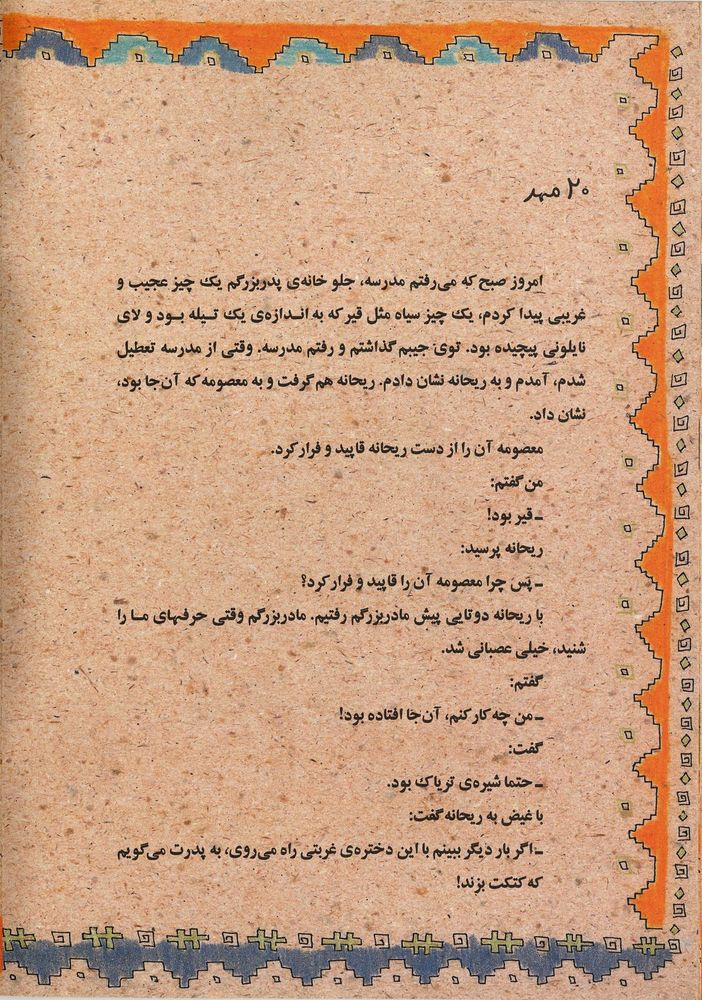 ۲۰ مهر
امروز صبح که می‌رفتم مدرسه، جلو خانه‌ی پدربزرگم یک چیز عجیب و
غریبی پیدا کردم، یک چیز سیاه مثل قیر که به اندازه‌ی یک تیله بود و لای
نایلونی پیچیده بود. توی جیبم گذاشتم و رفتم مدرسه. وقتی از مدرسه تعطیل
شدم، آمدم و به ریحانه نشان دادم. ریحانه هم گرفت و به معصومه که آن‌جا بود،
نشان داد.
معصومه آن را از دست ریحانه قاپید و فرار کرد.
من گفتم:
ـ قیر بود!
ریحانه پرسید:
ـ پس چرا معصومه آن را قاپید و فرار کرد؟
با ریحانه دوتایی پیش مادربزرگم رفتیم. مادربزرگم وقتی حرفهای ما را
شنید، خیلی عصبانی شد.
گفتم:
ـ من چه کار کنم، آن‌جا افتاده بود!
گفت:
ـ حتما شیره‌ی تریاک بود.
با غیض به ریحانه گفت:
ـ اگر بار دیگر ببینم با این دختره‌ی غربتی راه می‌روی، به پدرت می‌گویم
که کتکت بزند!